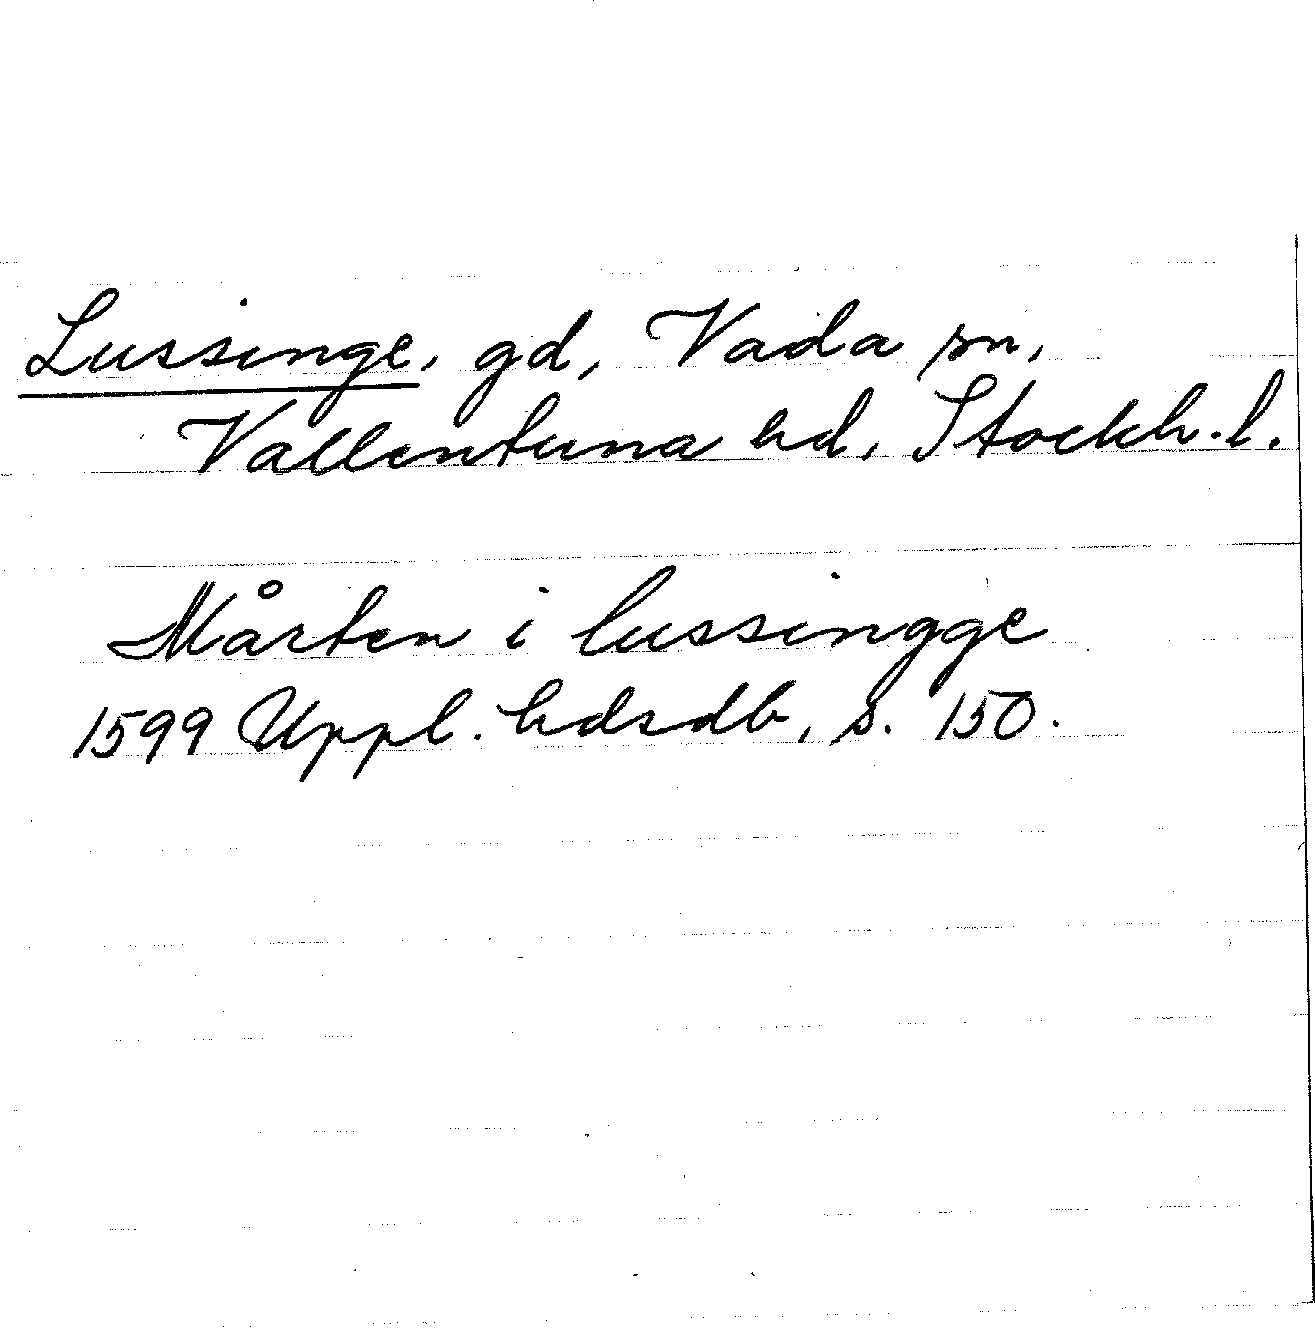 Lussinge, gd, Vada sn,
Vallentuna hd, Stockh. l.
Mårten i lussingge
1599 Uppl. hdsdb, s. 150.